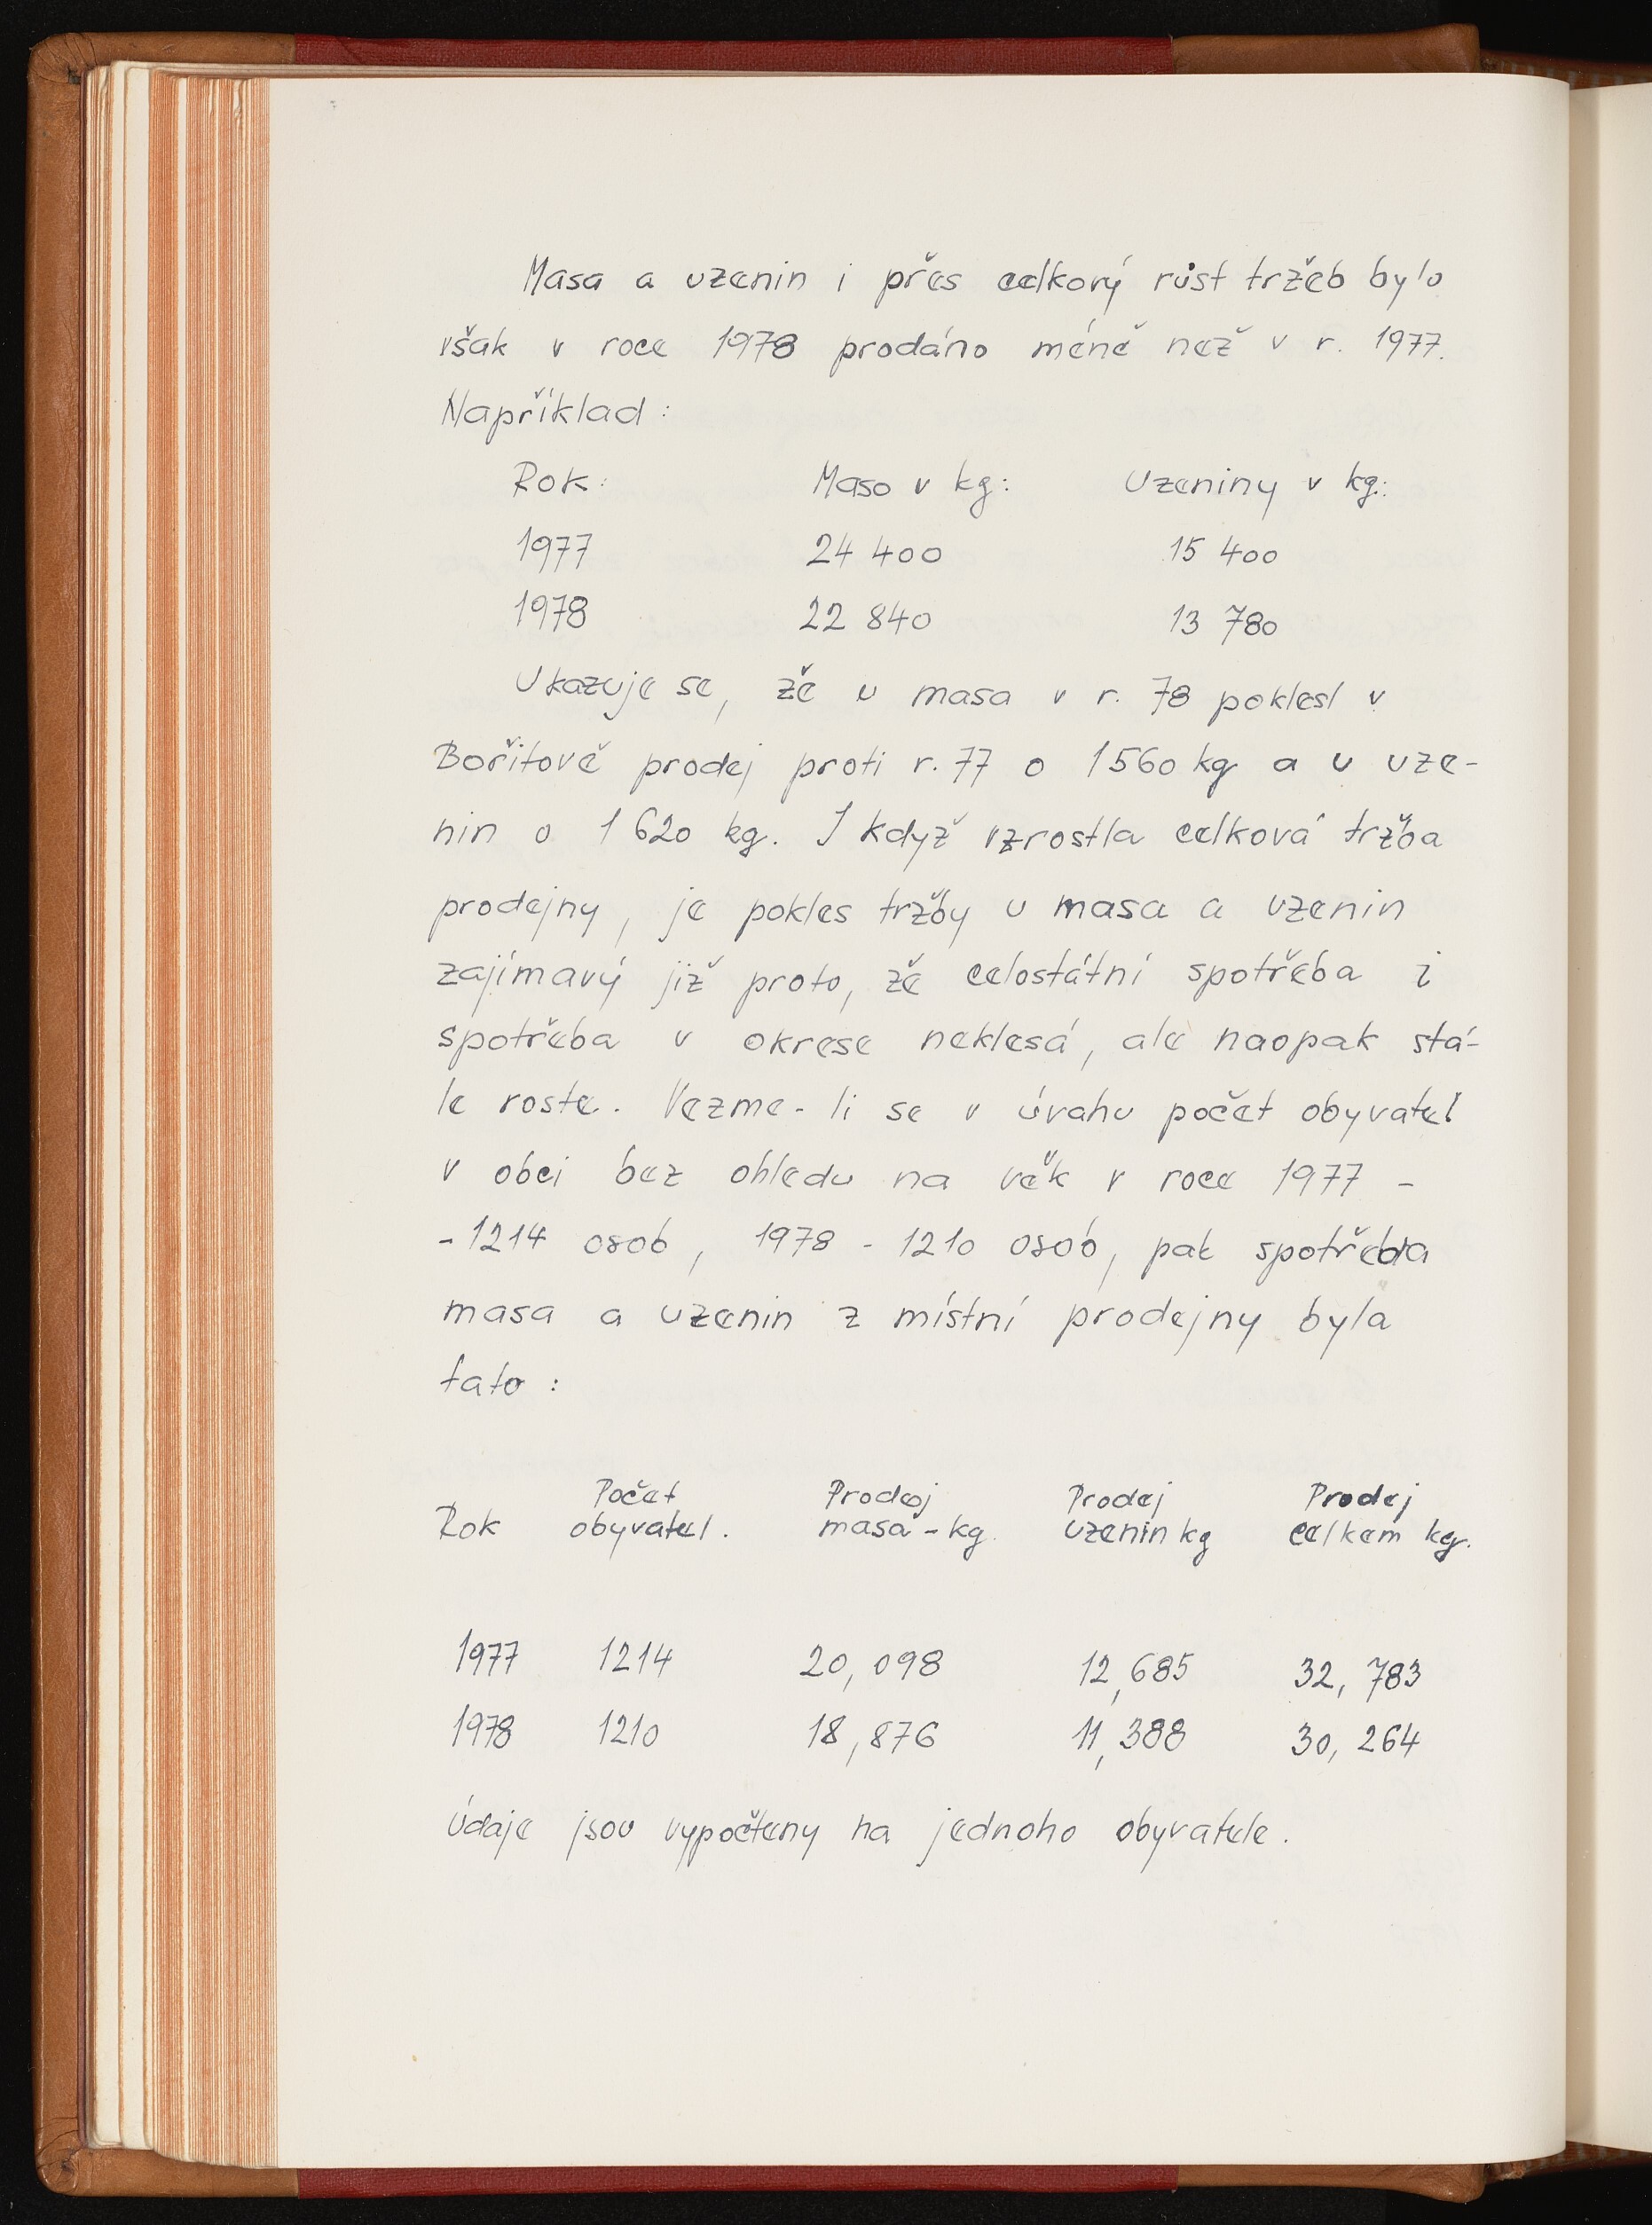 Masa a uzenin i přes celkový růst tržeb bylo
však v roce 1978 prodáno méně než v r. 1977.
Například:
Rok: Maso v kg: Uzeniny v kg:
1977 24 400 15 400
1978 22 840 13 780
Ukazuje se, že u masa v r. 78 poklesl v
Bořitově prodej proti r. 77 o 1560 kg a u uze-
nin o 1 620 kg. I když vzrostla celková tržba
prodejny, je pokles tržby u masa a uzenin
zajímavý již proto, že celostátní spotřeba i
spotřeba v okrese neklesá, ale naopak stá-
le roste. Vezme-li se v úvahu počet obyvatel
v obci bez ohledu na věk v roce 1977 -
- 1214 osob, 1978 - 1210 osob, pak spotřeba
masa a uzenin z místní prodejny byla
tato:
Rok Počet obyvatel. Prodej masa - kg. Prodej uzenin kg Prodej celkem kg.
1977 1214 20,098 12,685 32,783
1978 1210 18,876 11,388 30,264
Údaje jsou vypočteny na jednoho obyvatele.